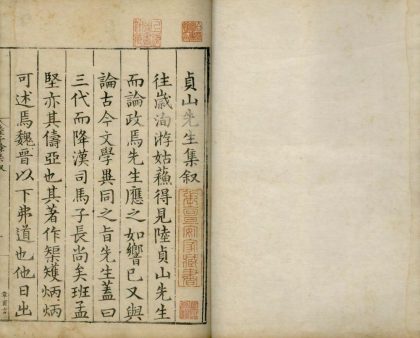 貞山先生集叙
往歲洵游姑蘓得見陸貞山先生
而論政焉先生應之如響已又與
論古今文學異同之旨先生蓋曰
三代而降漢司馬子長尚矣班孟
堅亦其儔亞也其著作榘矱炳炳
可述焉魏晉以下弗道也他日出